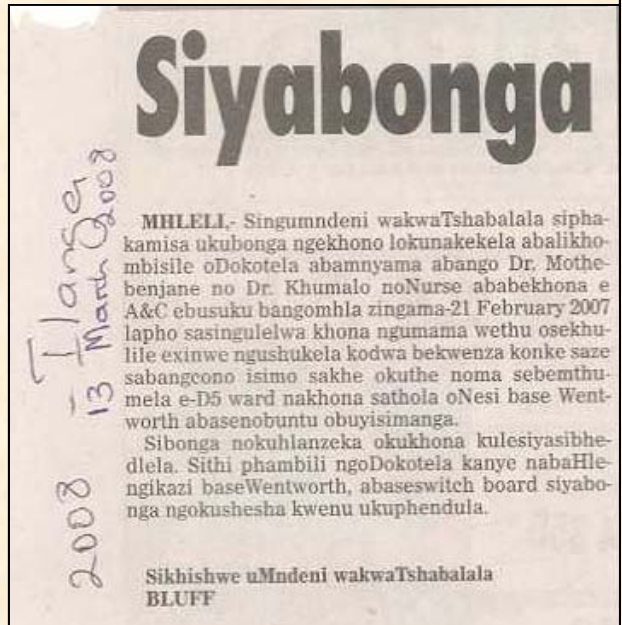 Siyabonga
MHLELI,- Singumndeni wakwaTshabalala sipha-
kamisa ukubonga ngekhono lokunakekela abalikho-
mbisile oDokotela abamnyama abango Dr. Mothe-
benjane no Dr. Khumalo noNurse ababekhona e
A&C ebusuku bangomhla zingama-21 February 2007
lapho sasingulelwa khona ngumama wethu osekhu-
lile exinwe ngushukela kodwa bekwenza konke saze
sabangcono isimo sakhe okuthe noma sebemthu-
mela e-D5 ward nakhona sathola oNesi base Went-
worth abasenobuntu obuyisimanga.
Sibonga nokuhlanzeka okukhona kulesiyasibhe-
dlela. Sithi phambili ngoDokotela kanye nabaHle-
ngikazi baseWentworth, abaseswitch board siyabo-
nga ngokushesha kwenu ukuphendula.
Sikhishwe uMndeni wakwaTshabalala
BLUFF
Ilanga
13 March 2008
2008